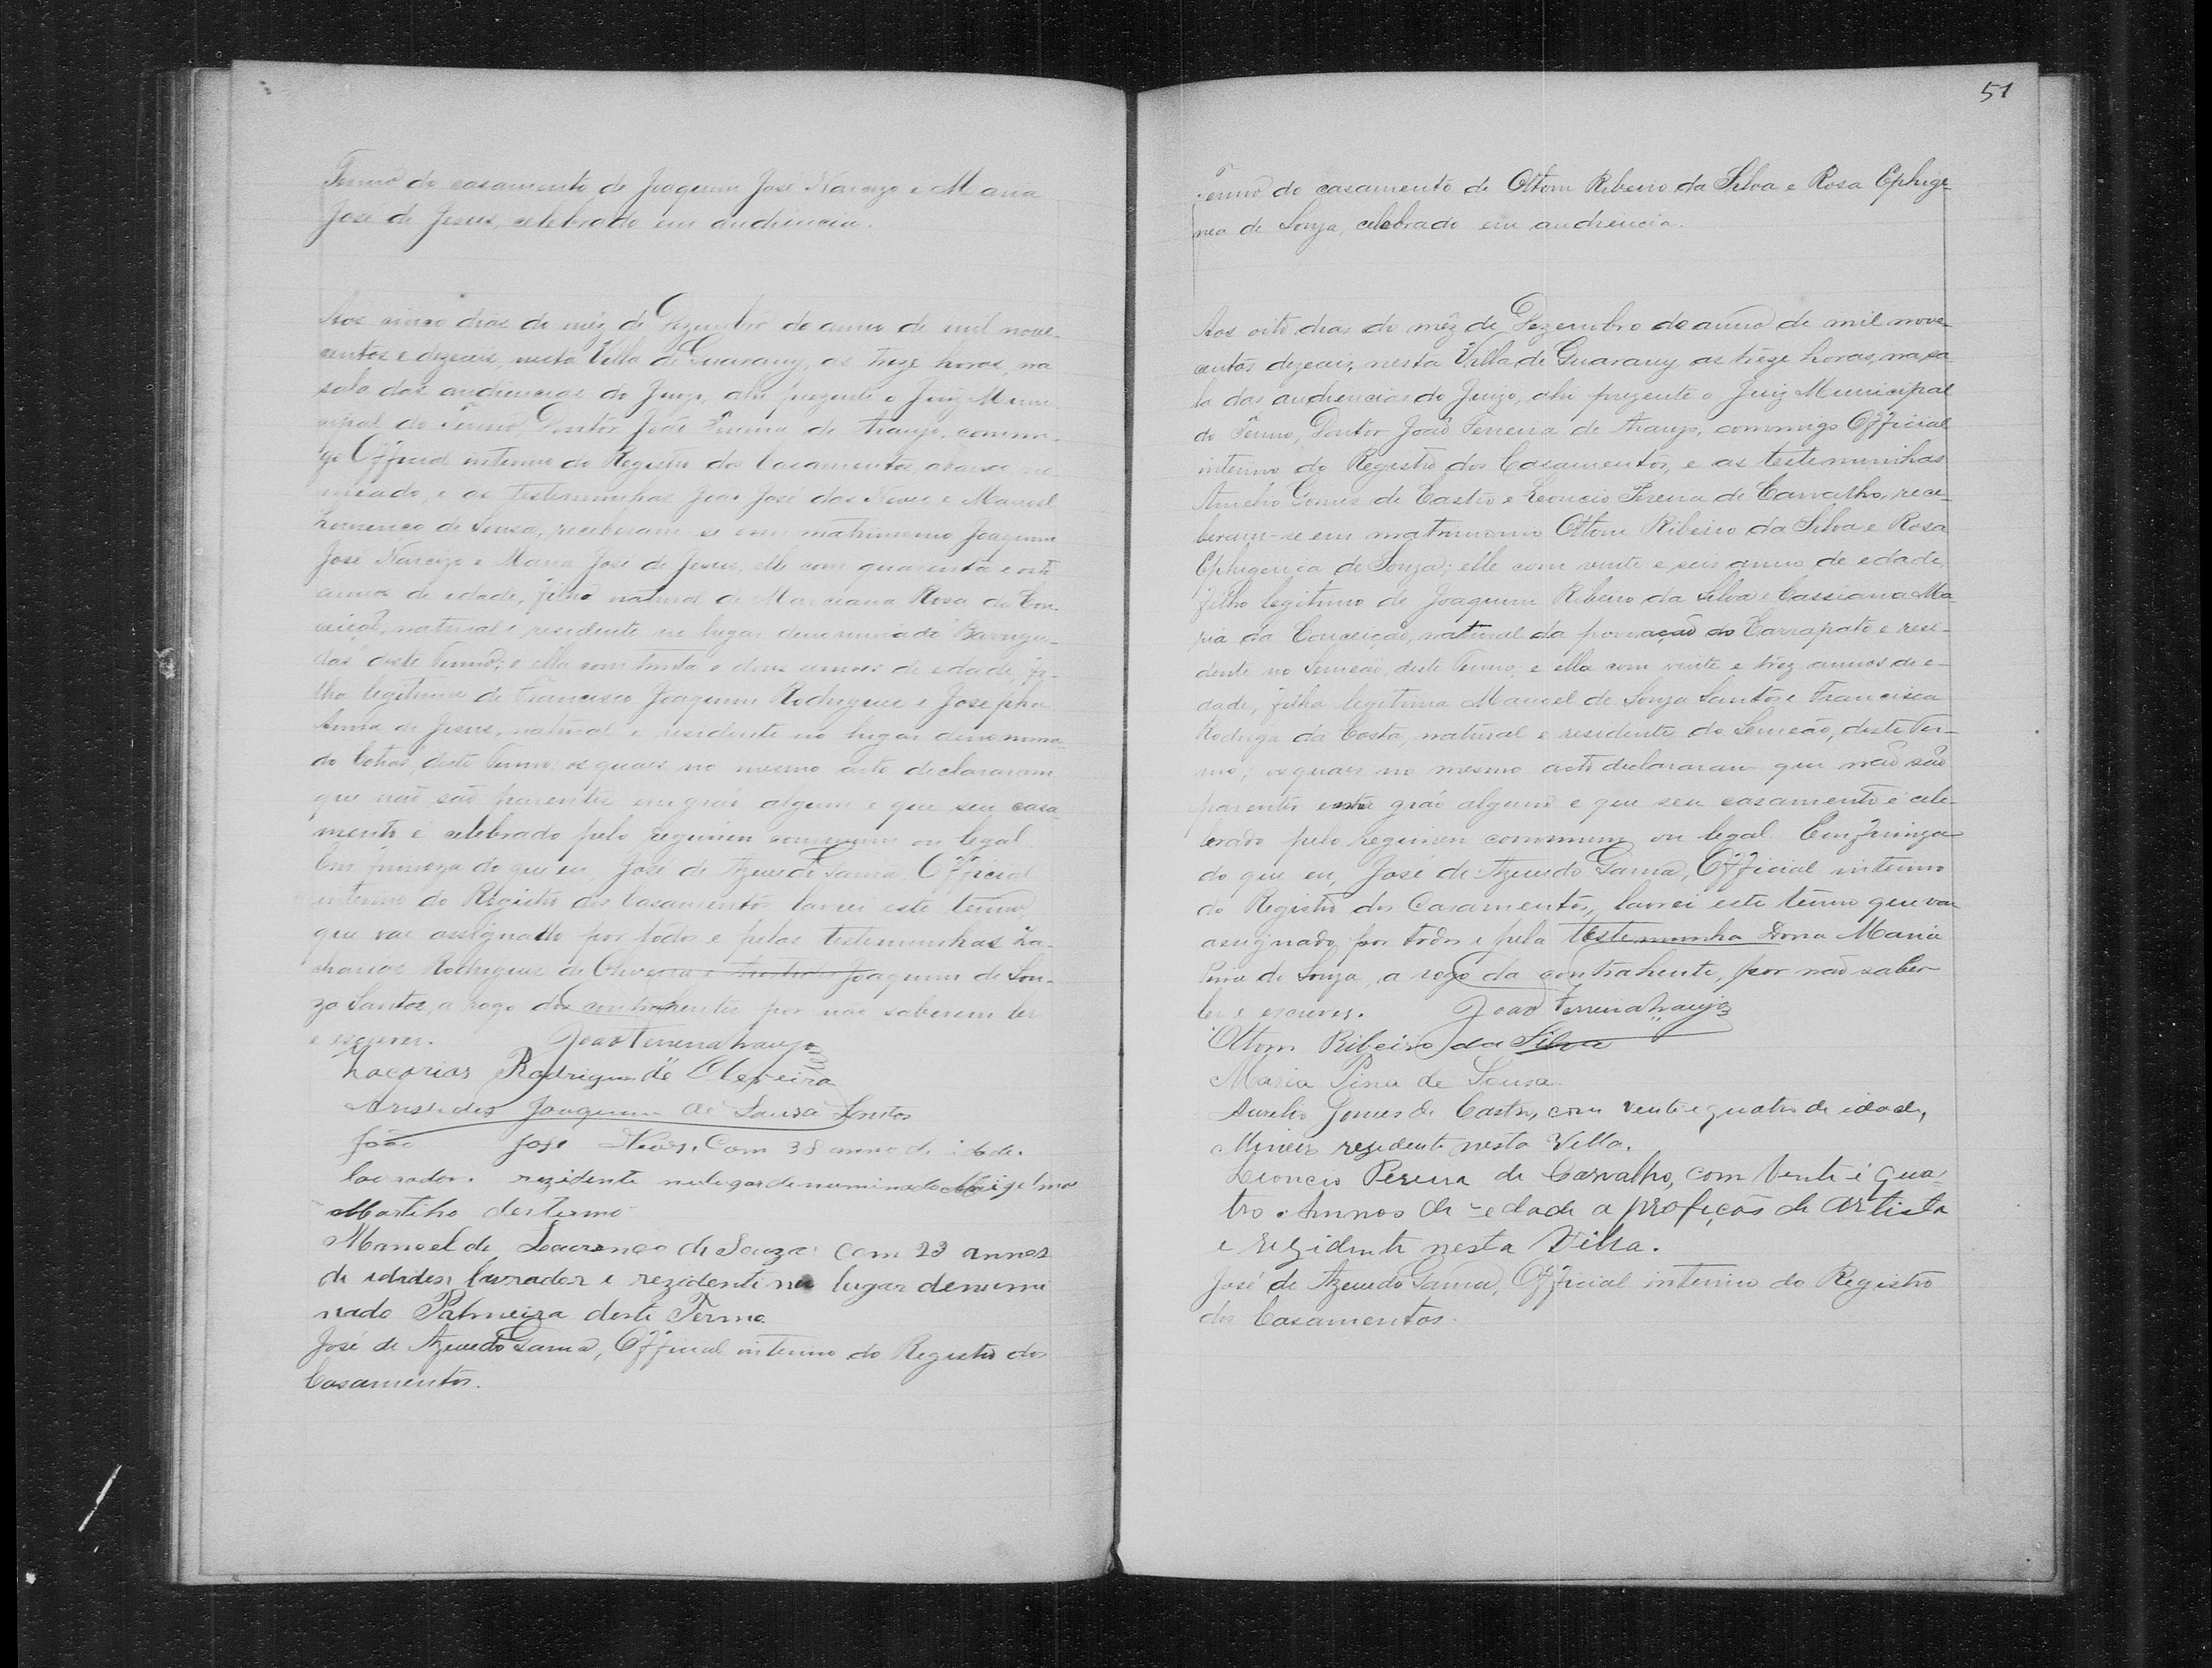 Termo do casamento de Joaquim José Narcizo e Maria
José de Jesus, celebrado em audiencia.
Aos cinco dias do mêz de Dezembro do anno de mil nove-
centos e dezeis, nesta Villa de Guarany, as treze horas, na
sala das audiencias do Juizo, ahi prezente o Juiz Muni-
cipal do Termo, Doutor João Ferreira de Araujo, commi-
go Official interino do Registro dos Casamentos, abaixo no-
meado, e as testemunhas João José das Neves e Manoel
Lourenço de Sousa, receberam-se em matrimonio Joaquim
José Narcizo e Maria José de Jesus; elle com quarenta e oito
annos de idade, filho natural de Marciana Rosa da Con-
ceição, natural e residente no lugar denominado
deste Termo; e ella com trinta e dous annos de edade, fi-
lha legitima de Francisco Joaquim Rodrigues e Josepha
Anna de Jesus, natural e residente no lugar denomina-
do deste Termo; os quaes no mesmo acto declararam
que não são parentes em gráo algum e que seu casa-
mento é celebrado pelo regimen commum ou legal.
Em firmeza do que eu, José de Azevedo Gama, Official
interino do Registro dos Casamentos, lavrei este termo,
que vae assignado por todos e pelas testemunhas Za-
charias Rodrigues de Oliveira e Aristides Joaquim de Sou-
za Santos, a rogo dos contrahentes por não saberem ler
e escrever. João Ferreira Araujo
Zacarias Rodrigues de Oliveira
Aristides Joaquim de Sousa Santos
João José Neves. Com 38 annos de idade.
lavrador. rezidente no logar denuminado
Martiho destermo
Manoel de Lourenço de Souza com 23 annos
de idades lavrador e rezidente no lugar denumi
nado Palmeira deste Termo
José de Azevedo Gama, Official interino do Registro dos
Casamentos.
51
Termo do casamento de Ottom Ribeiro da Silva e Rosa Ephige-
nea de Souza, celebrado em audiencia.
Aos oito dias do mêz de Dezembro do anno de mil nove-
centos dezeis, nesta Villa de Guarany as trêze horas, na sa-
la das audiencias do Juizo, ahi prezente o Juiz Municipal
do Termo, Doutor João Ferreira de Araujo, commigo Official
interino do Registro dos Casamentos, e as testemunhas
Aurelio Gomes de Castro e Leoncio Pereira de Carvalho, rece-
beram-se em matrimonio Ottom Ribeiro da Silva e Rosa
Ephigenica de Souza; elle com vinte e seis annos de edade,
filho legitimo de Joaquim Ribeiro da Silva e Cassiana Ma-
ria da Conceição, natural da povoação do Carrapato e resi-
dente no Semeão, deste Termo; e ella com vinte e trêz annos de e-
dade, filha legitima Manoel de Souza Santos e Francisca
Rodriga da Costa, natural e residente do Semeão, deste Ter-
mo, os quaes no mesmo acto declararam que não são
parentes entre gráo algum e que seu casamento é cele-
brado pelo regimen commum ou legal. Em firmeza
do que eu, José de Azevedo Gama, Official interino
do Registro dos Casamentos, lavrei este termo que vae
assignado por todos e pela testemunha Dona Maria
Pina de Souza, a rogo da contrahente, por não saber
ler e escrever. João Ferreira Araujo
Ottom Ribeiro da Silva
Maria Pina de Sousa.
Aurelio Gomes de Castro, com vente e quatro de idade,
Mineir rezidente nesta Villa.
Leoncio Pereira de Carvalho, com Vente i qua-
tro Annos de edade a profiçáo de Artista
e rezidente nesta Villa.
José de Azevedo Gama, Official interino do Registro
dos Casamentos.